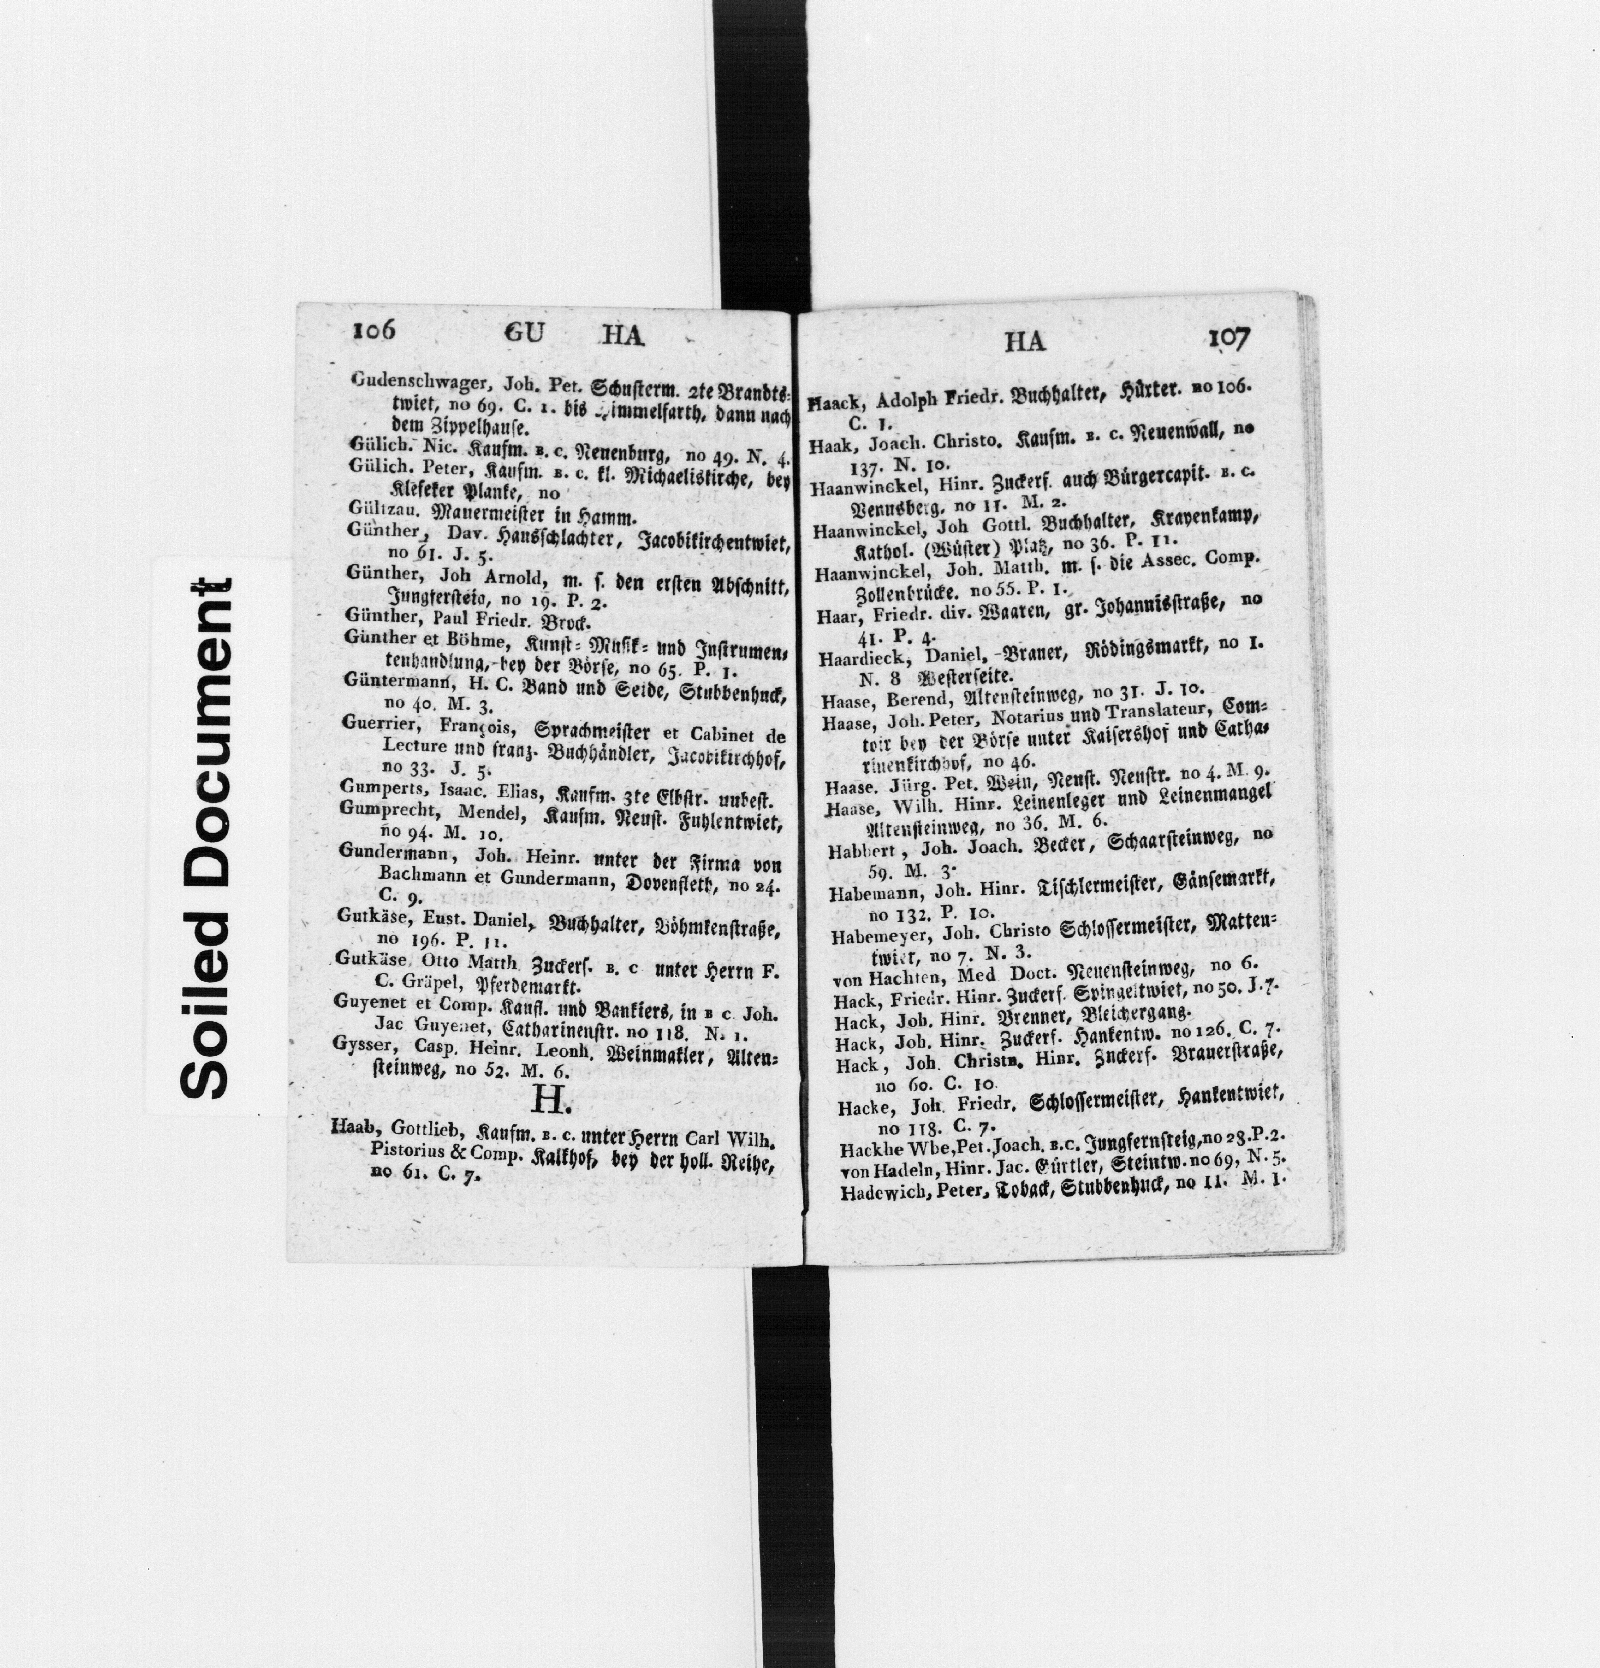 Soiled Document
106 GU HA
Gudenschwager, Joh. Pet. Schusterm. 2te Brandts-
twiet, no 69. C. 1. bis Himmelfarth, dann nach
dem Zippelhause.
Gülich. Nic. Kaufm. B. C. Neuenburg, no 49. N. 4.
Gülich. Peter, Kaufm. B. C. kl. Michaeliskirche, bey
Kleseker Planke, no
Gültzau. Mauermeister in Hamm.
Günther, Dav. Hausschlachter, Jacobikirchentwiet,
no 61. J. 5.
Günther, Joh Arnold, m. s. den ersten Abschnitt,
Jungfersteig, no 19. P. 2.
Günther, Paul Friedr. Brock.
Günther et Böhme, Kunst- Musik- und Instrumen-
tenhandlung, bey der Börse, no 65. P. 1.
Güntermann, H. C. Band und Seide, Stubbenhuck,
no 40. M. 3.
Guerrier, François, Sprachmeister et Cabinet de
Lecture und franz. Buchhändler, Jacobikirchhof,
no 33. J. 5.
Gumperts, Isaac. Elias, Kaufm. 3te Elbstr. unbest.
Gumprecht, Mendel, Kaufm. Neust. Fuhlentwiet,
no 94. M. 10.
Gundermann, Joh. Heinr. unter der Firma von
Bachmann et Gundermann, Dovenfleth, no 24.
C. 9.
Gutkäse, Eust. Daniel, Buchhalter, Böhmkenstraße,
no 196. P. 11.
Gutkäse, Otto Matth. Zuckerf. B. C. unter Herrn F.
C. Gräpel, Pferdemarkt.
Guyenet et Comp. Kaufl. und Bankiers, in B C. Joh.
Jac Guyenet, Catharinenstr. no 118. N. 1.
Gysser, Casp. Heinr. Leonh. Weinmakler, Alten-
steinweg, no 52. M. 6.
H.
Haab, Gottlieb, Kaufm. B. C. unter Herrn Carl Wilh.
Pistorius & Comp. Kalkhof, bey der holl. Reihe,
no 61. C. 7.
HA 107
Haack, Adolph Friedr. Buchhalter, Hürter. no 106.
C. 1.
Haak, Joach. Christo. Kaufm. B. C. Neuenwall, no
137. N. 10.
Haanwinckel, Hinr. Zuckerf. auch Bürgercapit. B. C.
Venusberg, no 11. M. 2.
Haanwinckel, Joh Gottl. Buchhalter, Krayenkamp,
Kathol. (Wüster) Platz, no 36. P. 11.
Haanwinckel, Joh. Matth. m. s. die Assec. Comp.
Zollenbrücke. no 55. P. 1.
Haar, Friedr. div. Waaren, gr. Johannisstraße, no
41. P. 4.
Haardieck, Daniel, Brauer, Rödingsmarkt, no 1.
N. 8 Westerseite.
Haase, Berend, Altensteinweg, no 31. J. 10.
Haase, Joh. Peter, Notarius und Translateur, Com-
toir bey der Börse unter Kaisershof und Catha-
rinenkirchhof, no 46.
Haase, Jürg. Pet. Wein, Neust. Neustr. no 4. M. 9.
Haase, Wilh. Hinr. Leinenleger und Leinenmangel
Altensteinweg, no 36. M. 6.
Habbert, Joh. Joach. Becker, Schaarsteinweg, no
59. M. 3.
Habemann, Joh. Hinr. Tischlermeister, Gänsemarkt,
no 132. P. 10.
Habemeyer, Joh. Christo Schlossermeister, Matten-
twiet, no 7. N. 3.
von Hachten, Med Doct. Neuensteinweg, no 6.
Hack, Friedr. Hinr. Zuckerf. Springeltwiet, no 50. J. 7.
Hack, Joh. Hinr. Brenner, Bleichergang.
Hack, Joh. Hinr. Zuckerf. Hankentw. no 126. C. 7.
Hack, Joh. Christn. Hinr. Zuckerf. Brauerstraße,
no 60. C. 10.
Hacke, Joh. Friedr. Schlossermeister, Hankentwiet,
no 118. C. 7.
Hackhe Wbe, Pet. Joach. B.C. Jungfernsteig, no 28. P. 2.
von Hadeln, Hinr. Jac. Gürtler, Steintw. no 69, N. 5.
Hadewich, Peter, Toback, Stubbenhuck, no 11. M. 1.